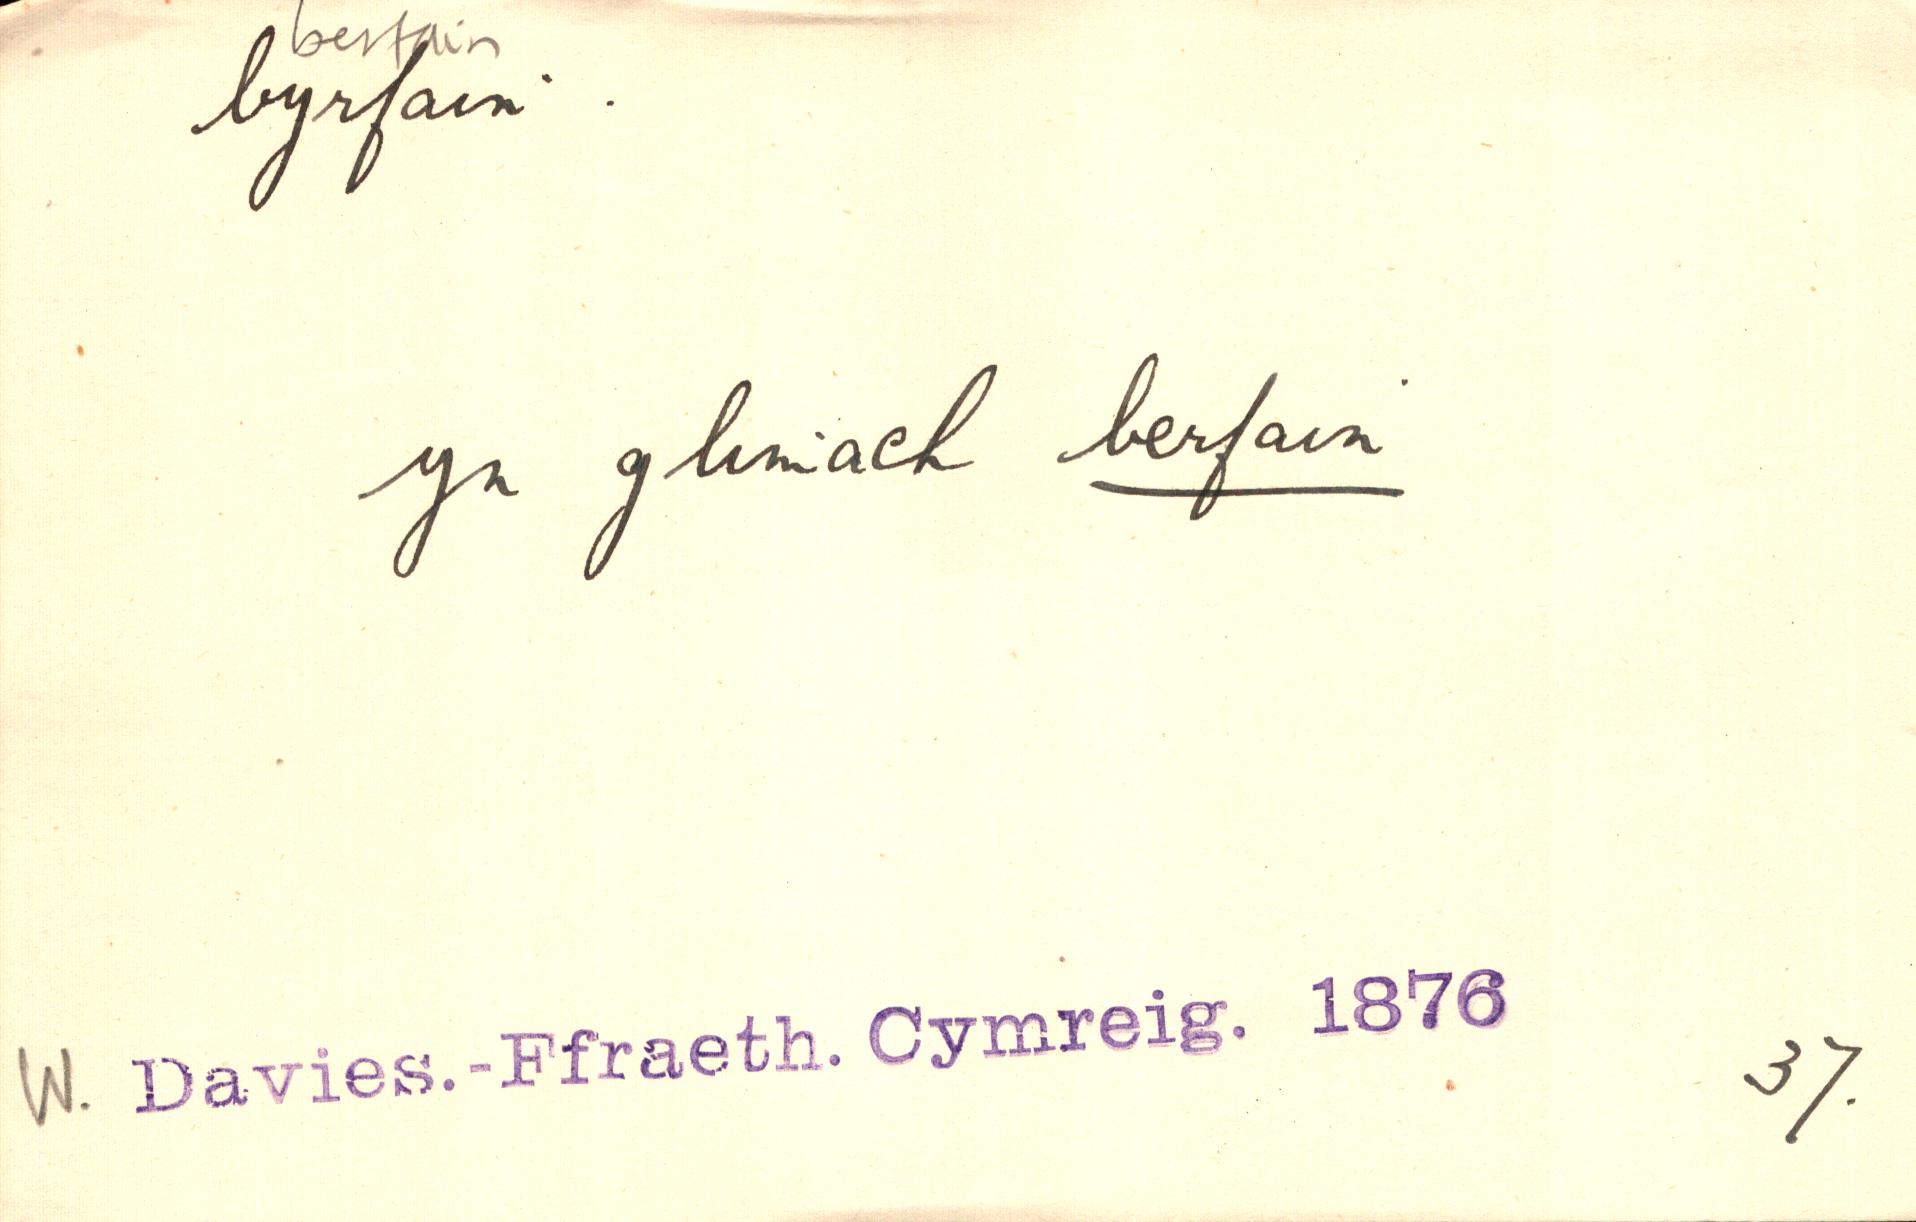 berfain
byrfain.
yn gliniach berfain
W. Davies.-Ffraeth. Cymreig. 1876
37.